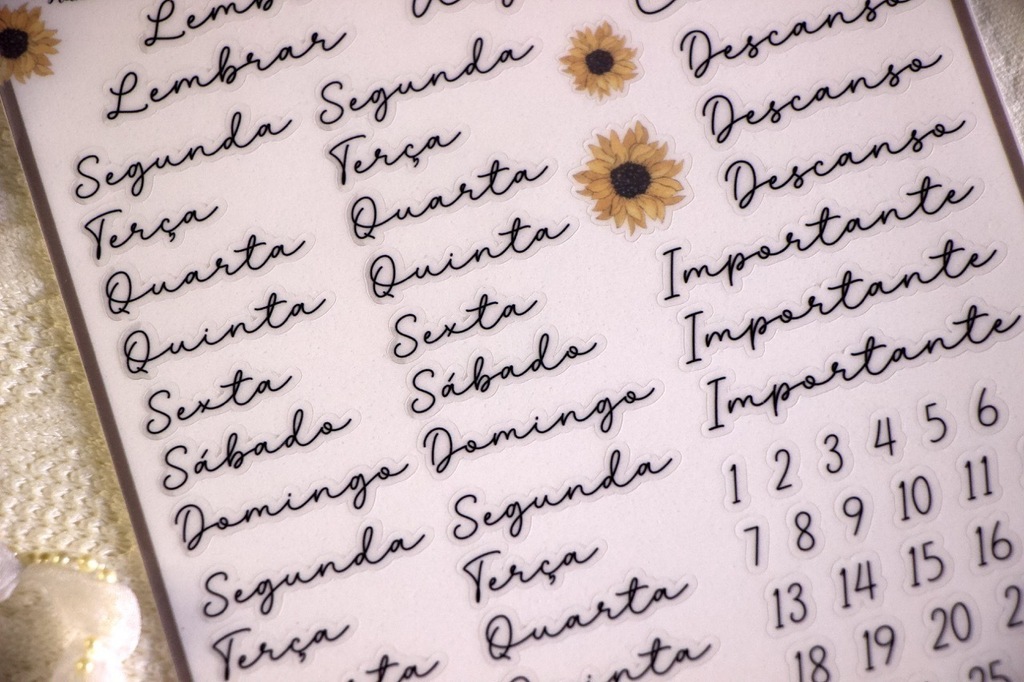 Lembrar
Lembrar
Segunda
Terça
Quarta
Quinta
Sexta
Sábado
Domingo
Segunda
Terça
Segunda
Terça
Quarta
Quinta
Sexta
Sábado
Domingo
Segunda
Terça
Quarta
Descanso
Descanso
Descanso
Importante
Importante
Importante
1 2 3 4 5 6
7 8 9 10 11
13 14 15 16
18 19 20
25